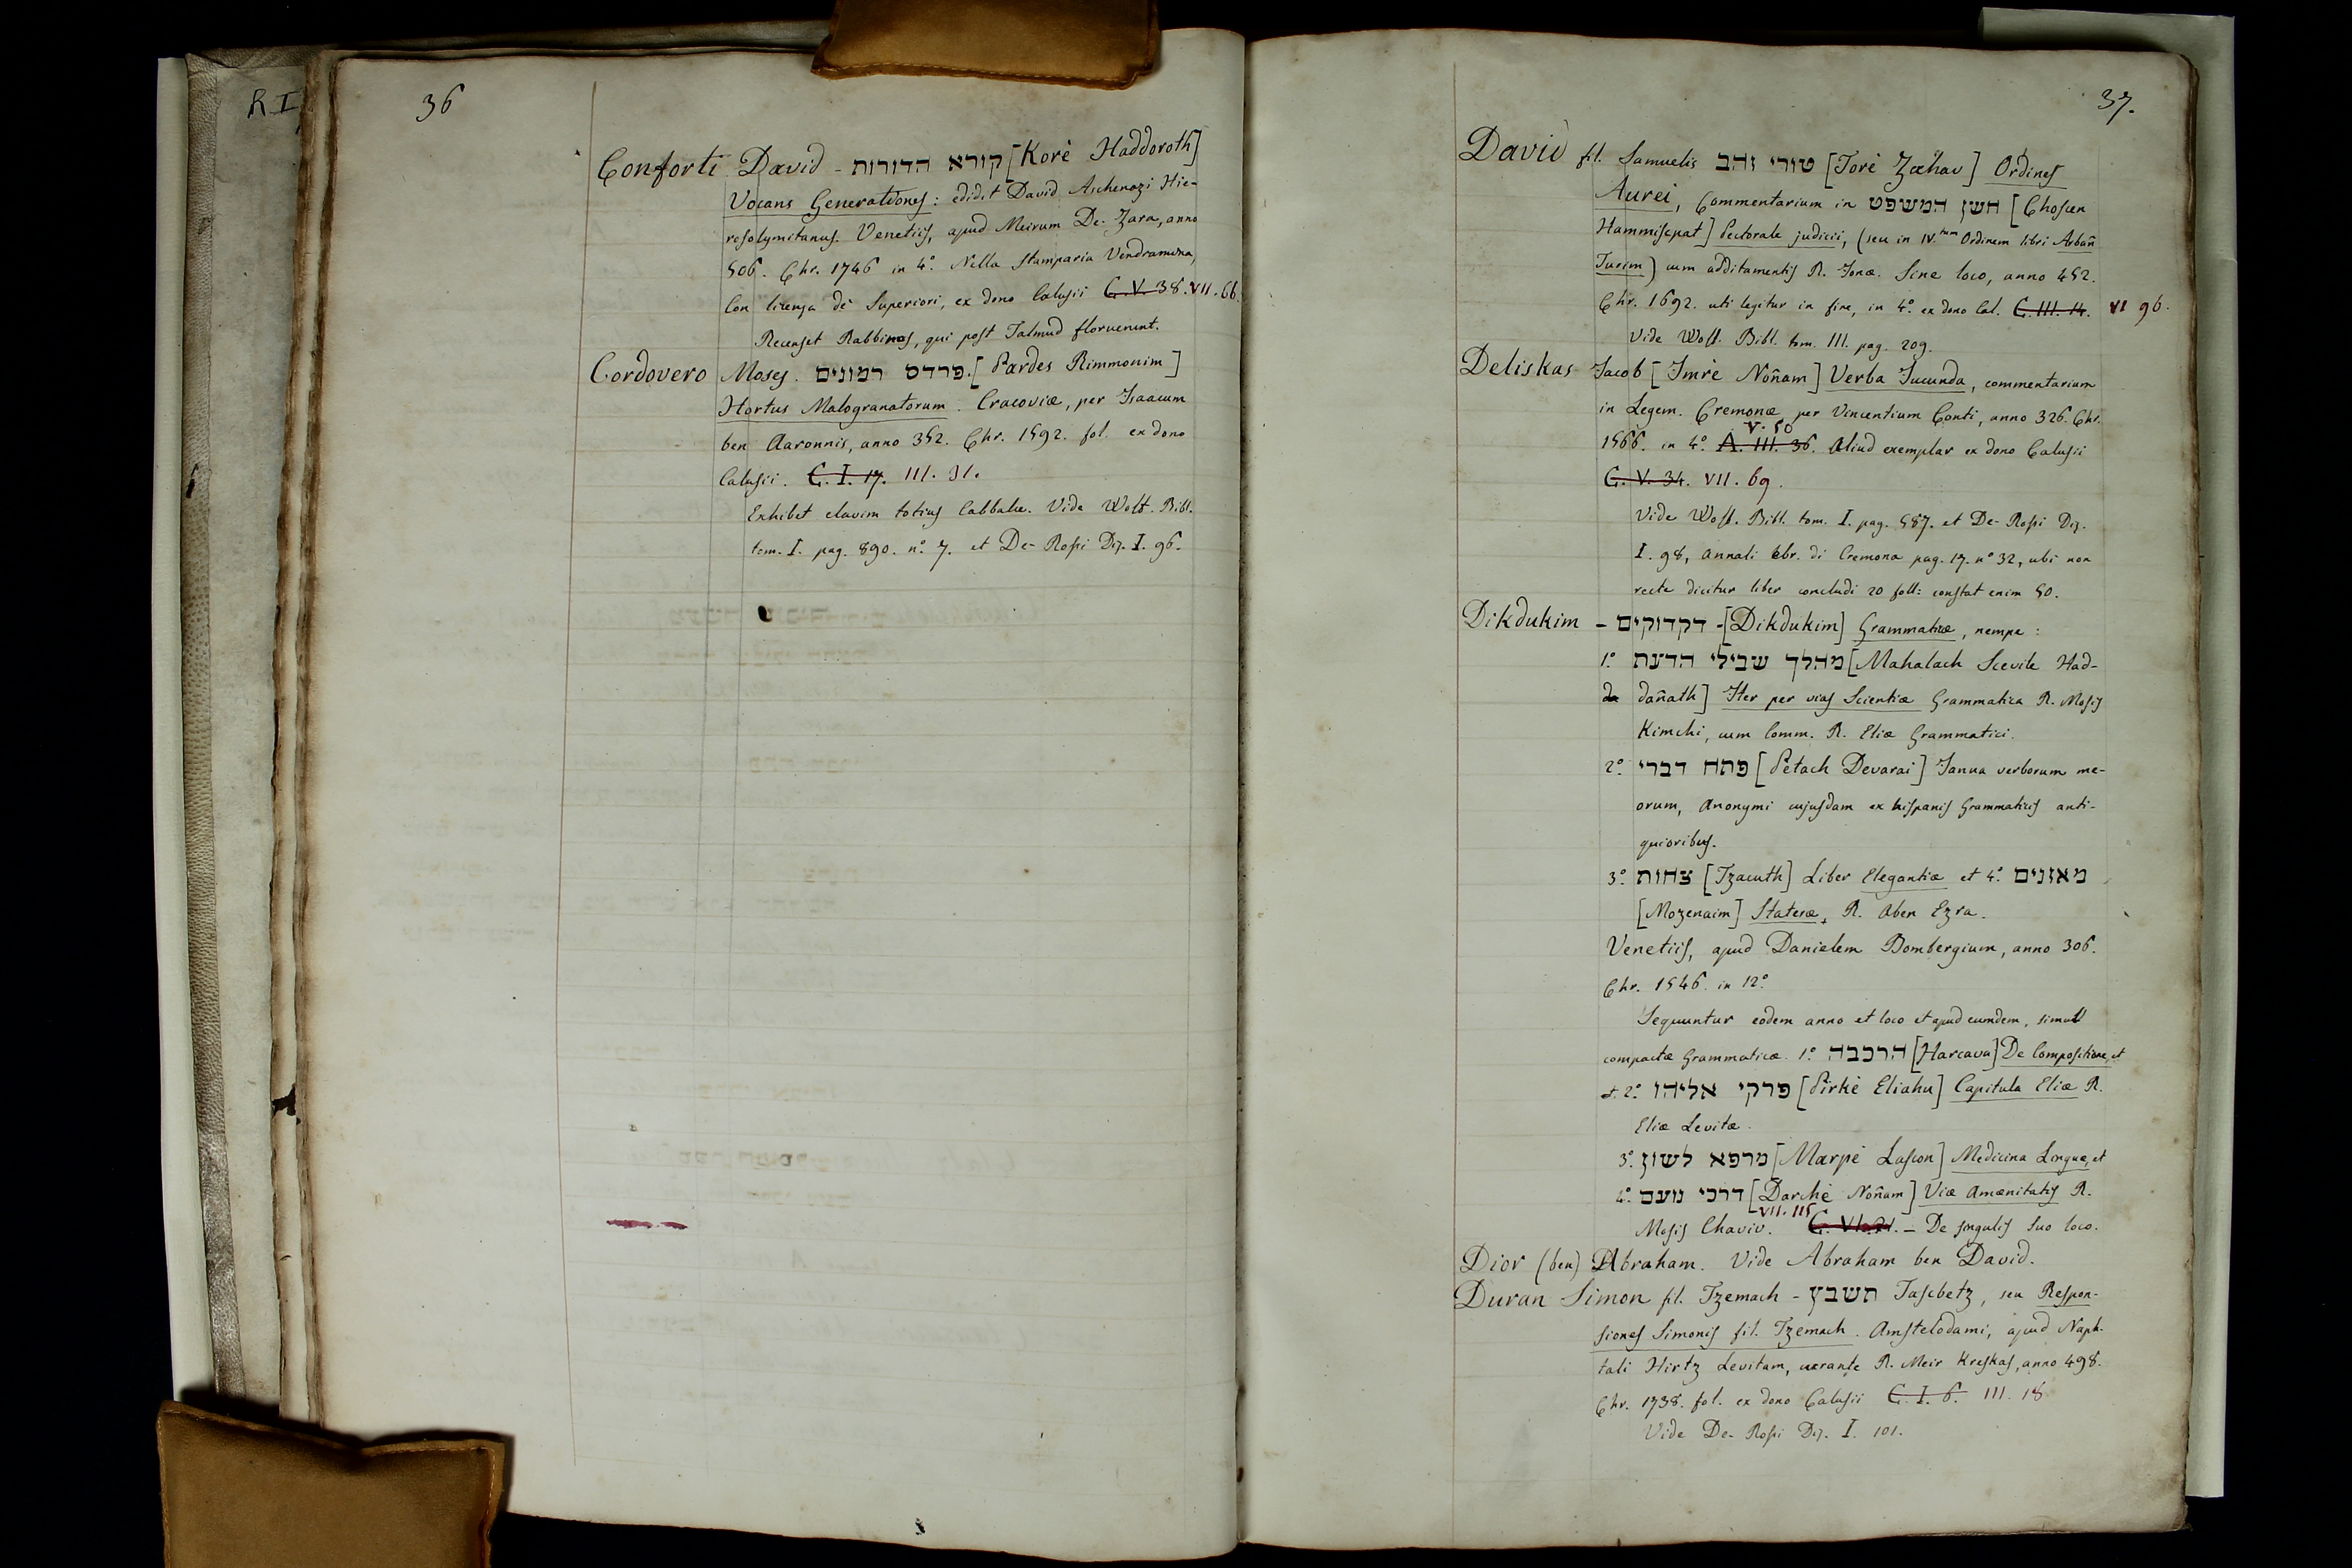 R I
36
Conforti David - קורא הדורות [Korè Haddoroth]
Vocans Generationes: edidit David Aschenazi Hie-
rosolymitanus. Venetiis, apud Meirum De-Zara, anno
506. Chr. 1746 in 4.° Nella Stamparia Vendramina,
Con licenza de' Superiori, ex dono Calusii C. V. 38. VII. 66.
Recenset Rabbinos, qui post Talmud floruerunt.
Cordovero Moses. פרדס רמונים. [Pardes Rimmonim]
Hortus Malogranatorum. Cracoviæ, per Isaacum
ben Aaronnis, anno 352. Chr. 1592. fol. ex dono
Calusii. C. I. 17. III. 31.
Exhibet clavim totius Cabbalæ. Vide Wolf. Bibl.
tom. I. pag. 890. n.° 7. et De-Rossi Diz. I. 96.
37.
David fil. Samuelis טורי זהב [Torè Zahav] Ordines
Aurei, Commentarium in חשן המשפט [Choscen
Hammiscpat] Pectorale judicii, (seu in IV.tum Ordinem libri Arban̄
Turim) cum additamentis R. Jonæ. Sine loco, anno 452.
Chr. 1692. uti legitur in fine, in 4.° ex dono Cal. C. III. 14. VI 96.
Vide Wolf. Bibl. tom. III. pag. 209.
Deliskas Jacob [Imrè Non̄am] Verba Jucunda, commentarium
in Legem. Cremonæ per Vincentium Conti, anno 326. Chr.
1566. in 4.° A. III. 36. V. 50 Aliud exemplar ex dono Calusii
C. V. 34. VII. 69.
Vide Wolf. Bibl. tom. I. pag. 587. et De-Rossi Diz.
I. 98, Annali Ebr. di Cremona pag. 17. n.° 32, ubi non
recte dicitur liber concludi 20 foll: constat enim 50.
Dikdukim - דקדוקים - [Dikdukim] Grammaticæ, nempe:
1.° מהלך שבילי הדעת [Mahalach Scevile Had-
da dan̄ath] Iter per vias Scientiæ Grammatica R. Mosis
Kimchi, cum Comm. R. Eliæ Grammatici.
2.° פתח דברי [Petach Devarai] Janua verborum me-
orum, Anonymi cujusdam ex hispanis Grammaticis anti-
quioribus.
3.° צחות [Tzacuth] Liber Elegantiæ et 4.° מאזנים
[Mozenaim] Stateræ, R. Aben Ezra.
Venetiis, apud Danielem Bombergium, anno 306.
Chr. 1546. in 12.°
Sequuntur eodem anno et loco et apud eumdem, simul
compactæ Grammaticæ. 1.° הרכבה [Harcava] De Compositione, et
et 2.° פרקי אליהו [Pirkè Eliahu] Capitula Eliæ R.
Eliæ Levitæ.
3.° מרפא לשון [Marpè Lascon] Medicina Linguæ, et
4.° דרכי נועם [Darchè Non̄am] Viæ Amænitatis R.
Mosis Chaviv. VII. 115 C. VI. 21. - De singulis suo loco.
Dior (ben) Abraham. Vide Abraham ben David.
Duran Simon fil. Tzemach - תשבץ Tascbetz, seu Respon-
siones Simonis fil. Tzemach. Amstelodami, apud Naph-
tali Hirtz Levitam, curante R. Meir Kreskas, anno 498.
Chr. 1738. fol. ex dono Calusii C. I. 6. III. 18
Vide De-Rossi Diz. I. 101.